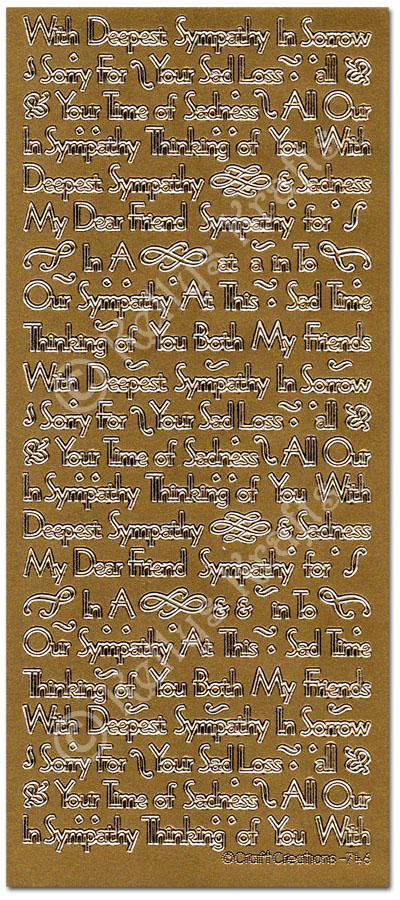 With Deepest Sympathy In Sorrow
Sorry For Your Sad Loss all &
& Your Time of Sadness All Our
In Sympathy Thinking of You With
Deepest Sympathy & Sadness
My Dear Friend Sympathy for
In A at a in To
Our Sympathy At This Sad Time
Thinking of You Both My Friends
With Deepest Sympathy In Sorrow
Sorry For Your Sad Loss all &
& Your Time of Sadness All Our
In Sympathy Thinking of You With
Deepest Sympathy & Sadness
My Dear Friend Sympathy for
In A & & in To
Our Sympathy At This Sad Time
Thinking of You Both My Friends
With Deepest Sympathy In Sorrow
Sorry For Your Sad Loss all &
& Your Time of Sadness All Our
In Sympathy Thinking of You With
©Craft Creations -746
© Kalija Krafts
© Kalija Krafts